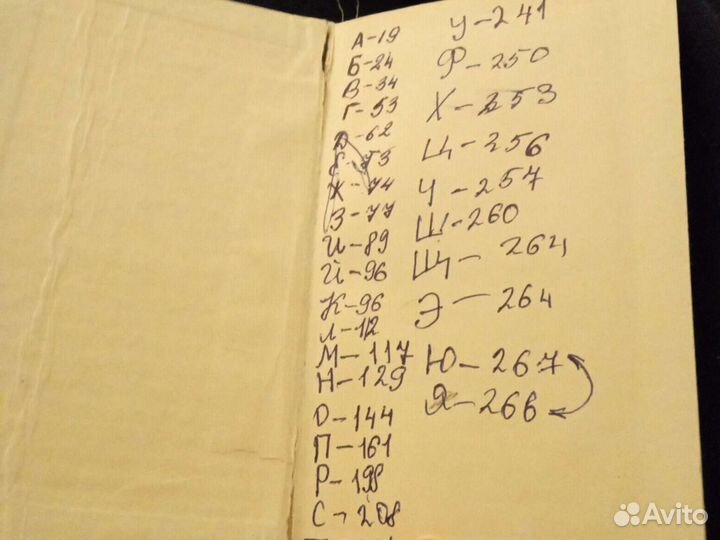 А-19
Б-24
В-34
Г-53
Д-62
Е-73
Ж-74
З-77
И-89
Й-96
К-96
Л-112
М-117
Н-129
О-144
П-161
Р-198
С-208
У-241
Ф-250
Х-253
Ц-256
Ч-257
Ш-260
Щ-264
Э-264
Ю-267
Я-266
Avito